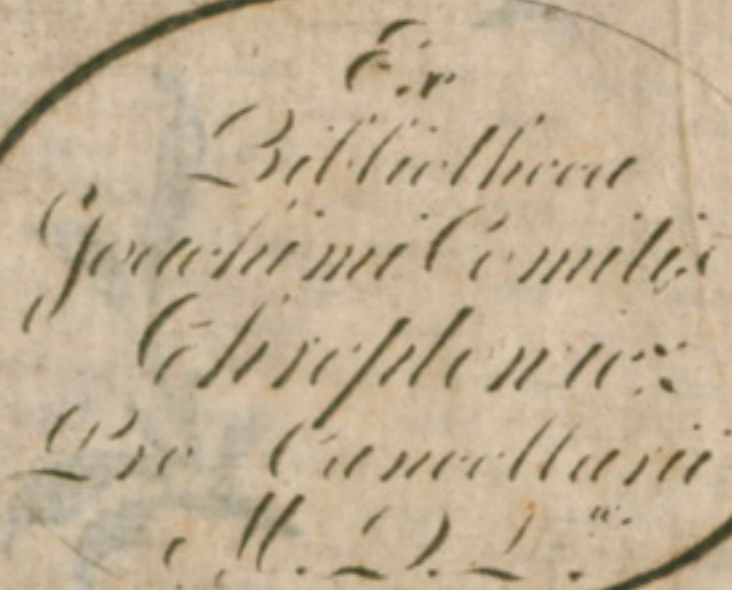 Ex
Bibliotheca
Joachimi Comitis
Chreptowicz
Pro Cancellarii
M. D. L.